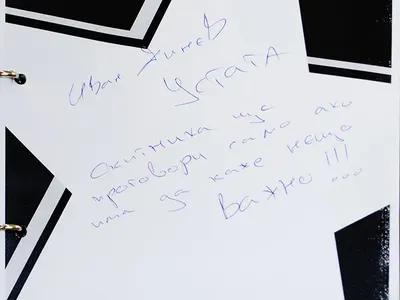 Иван Динев
УСТАТА
Скитника ще
проговори само ако
има да каже нещо
ВАЖНО!!!...